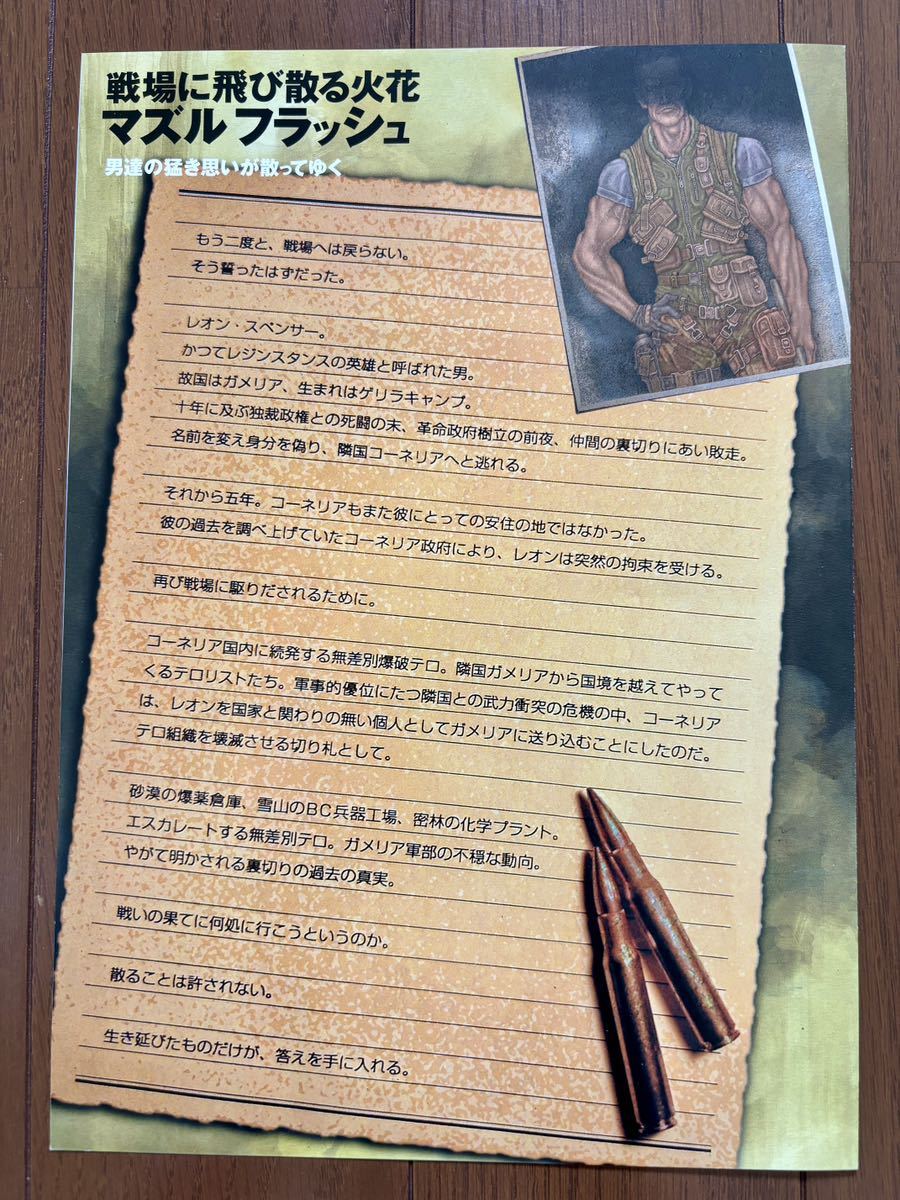 戦場に飛び散る火花
マズル フラッシュ
男達の猛き思いが散ってゆく
もう二度と、戦場へは戻らない。
そう誓ったはずだった。
レオン・スペンサー。
かつてレジンスタンスの英雄と呼ばれた男。
故国はガメリア、生まれはゲリラキャンプ。
十年に及ぶ独裁政権との死闘の末、革命政府樹立の前夜、仲間の裏切りにあい敗走。
名前を変え身分を偽り、隣国コーネリアへと逃れる。
それから五年。コーネリアもまた彼にとっての安住の地ではなかった。
彼の過去を調べ上げていたコーネリア政府により、レオンは突然の拘束を受ける。
再び戦場に駆りだされるために。
コーネリア国内に続発する無差別爆破テロ。隣国ガメリアから国境を越えてやって
くるテロリストたち。軍事的優位にたつ隣国との武力衝突の危機の中、コーネリア
は、レオンを国家と関わりの無い個人としてガメリアに送り込むことにしたのだ。
テロ組織を壊滅させる切り札として。
砂漠の爆薬倉庫、雪山のBC兵器工場、密林の化学プラント。
エスカレートする無差別テロ。ガメリア軍部の不穏な動向。
やがて明かされる裏切りの過去の真実。
戦いの果てに何処に行こうというのか。
散ることは許されない。
生き延びたものだけが、答えを手に入れる。